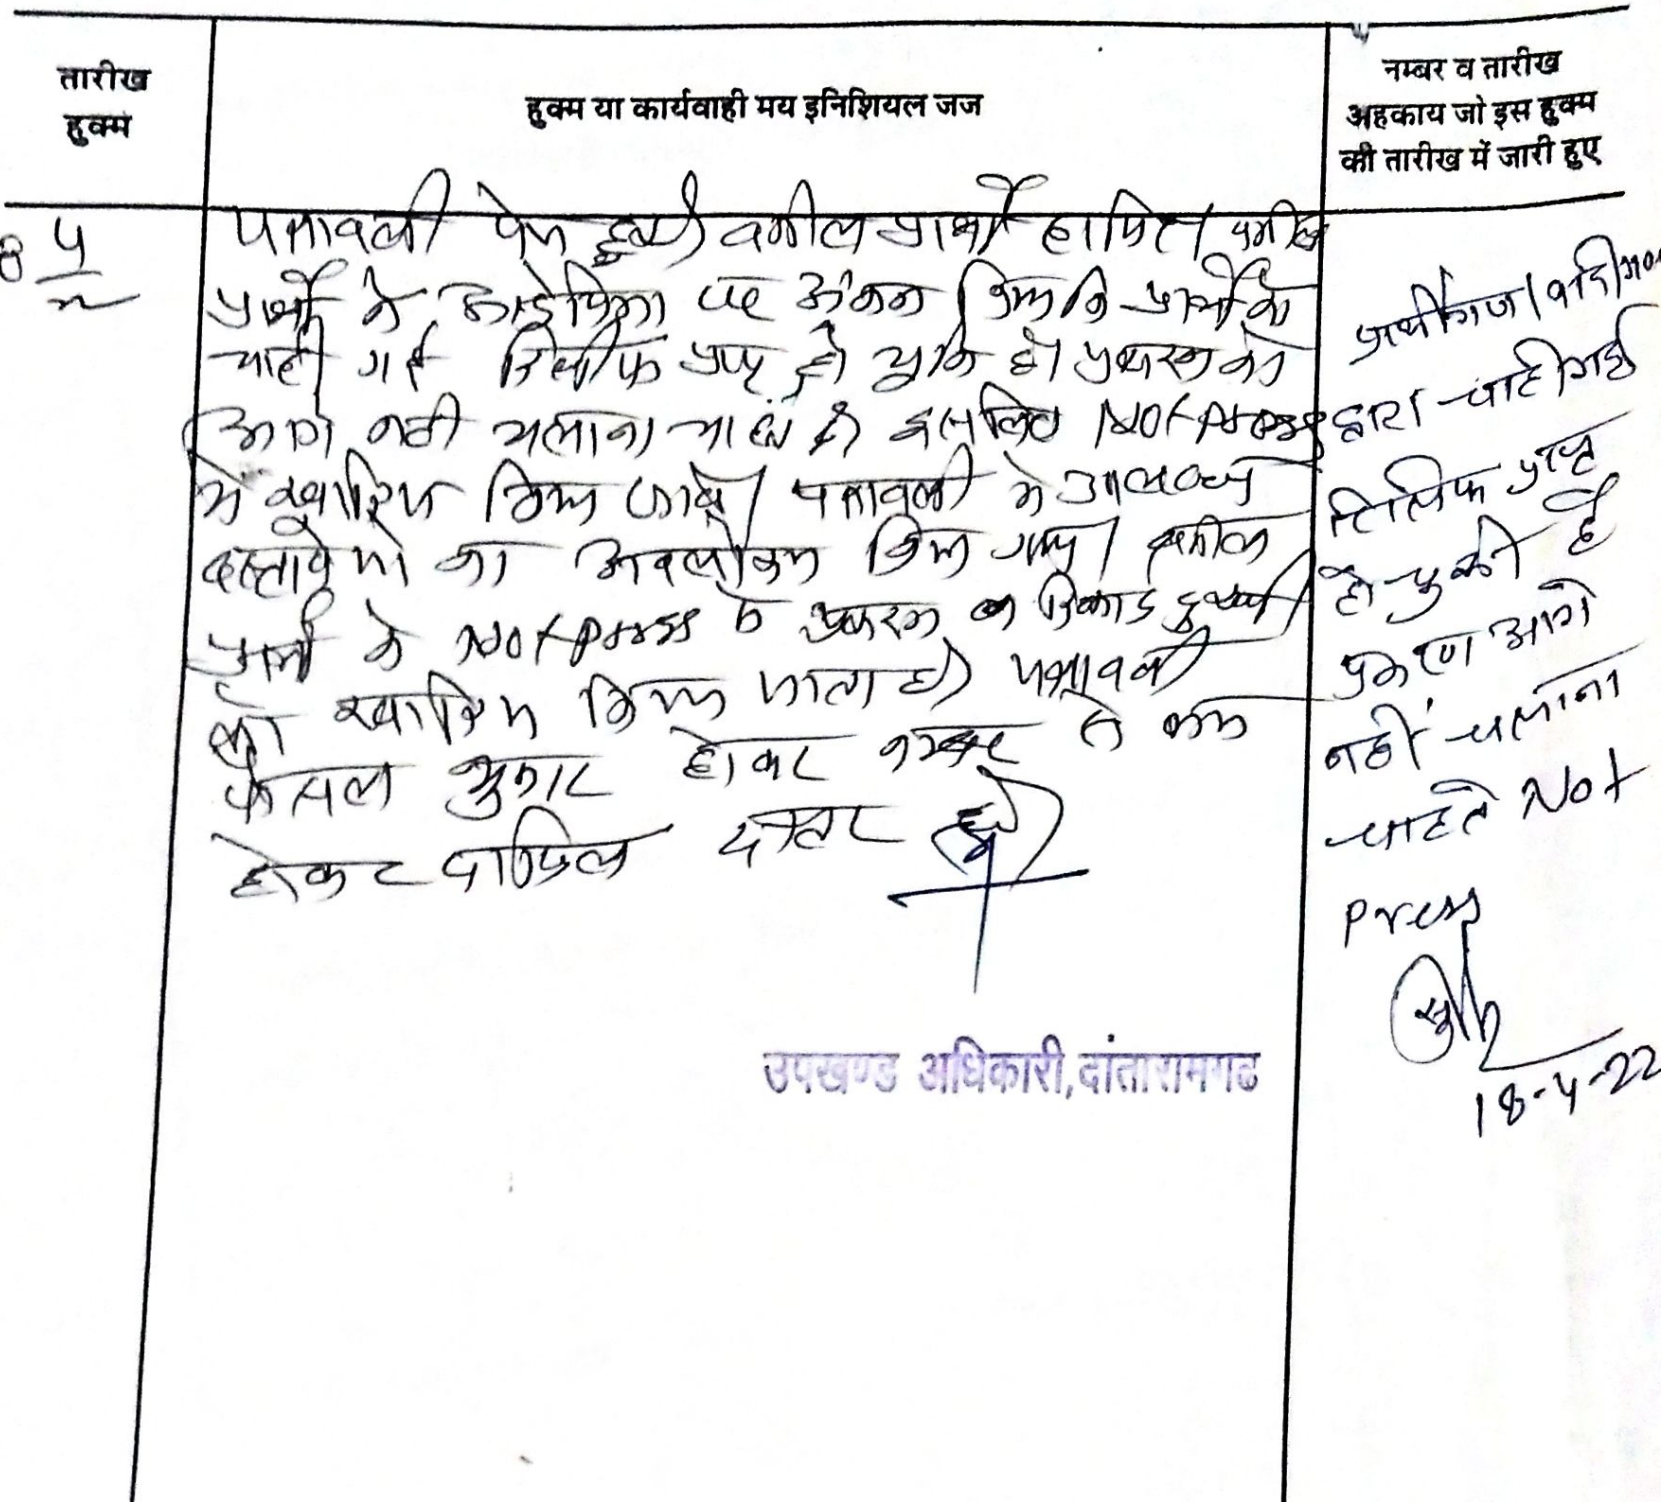 तारीख
हुक्म
हुक्म या कार्यवाही मय इनिशियल जज
नम्बर व तारीख
अहकाय जो इस हुक्म
की तारीख में जारी हुए
पत्रावली पेश हुयी वकील प्रार्थी हाजिर। वकील
प्रार्थी ने आदेशिका पर अंकन किया कि प्रार्थी को
चाही गई रिलीफ प्राप्त हो चुकी है। प्रकरण को
आगे नही चलाना चाहते है इसलिए Not Press
मे खारिज किया जावे। पत्रावली मे उपलब्ध
दस्तावेजो का अवलोकन किया गया। वकील
प्रार्थी के Not press प्रकरण
को खारिज किया जाता है। पत्रावली
फैसल शुमार होकर नम्बर से कम
होकर दाखिल दफ्तर हो।
उपखण्ड अधिकारी, दांतारामगढ
प्रार्थीगण/वादीगण
द्वारा चाही गई
रिलिफ प्राप्त
हो चुकी है
प्रकरण आगे
नहीं चलाना
चाहते Not
Press
18-4-22